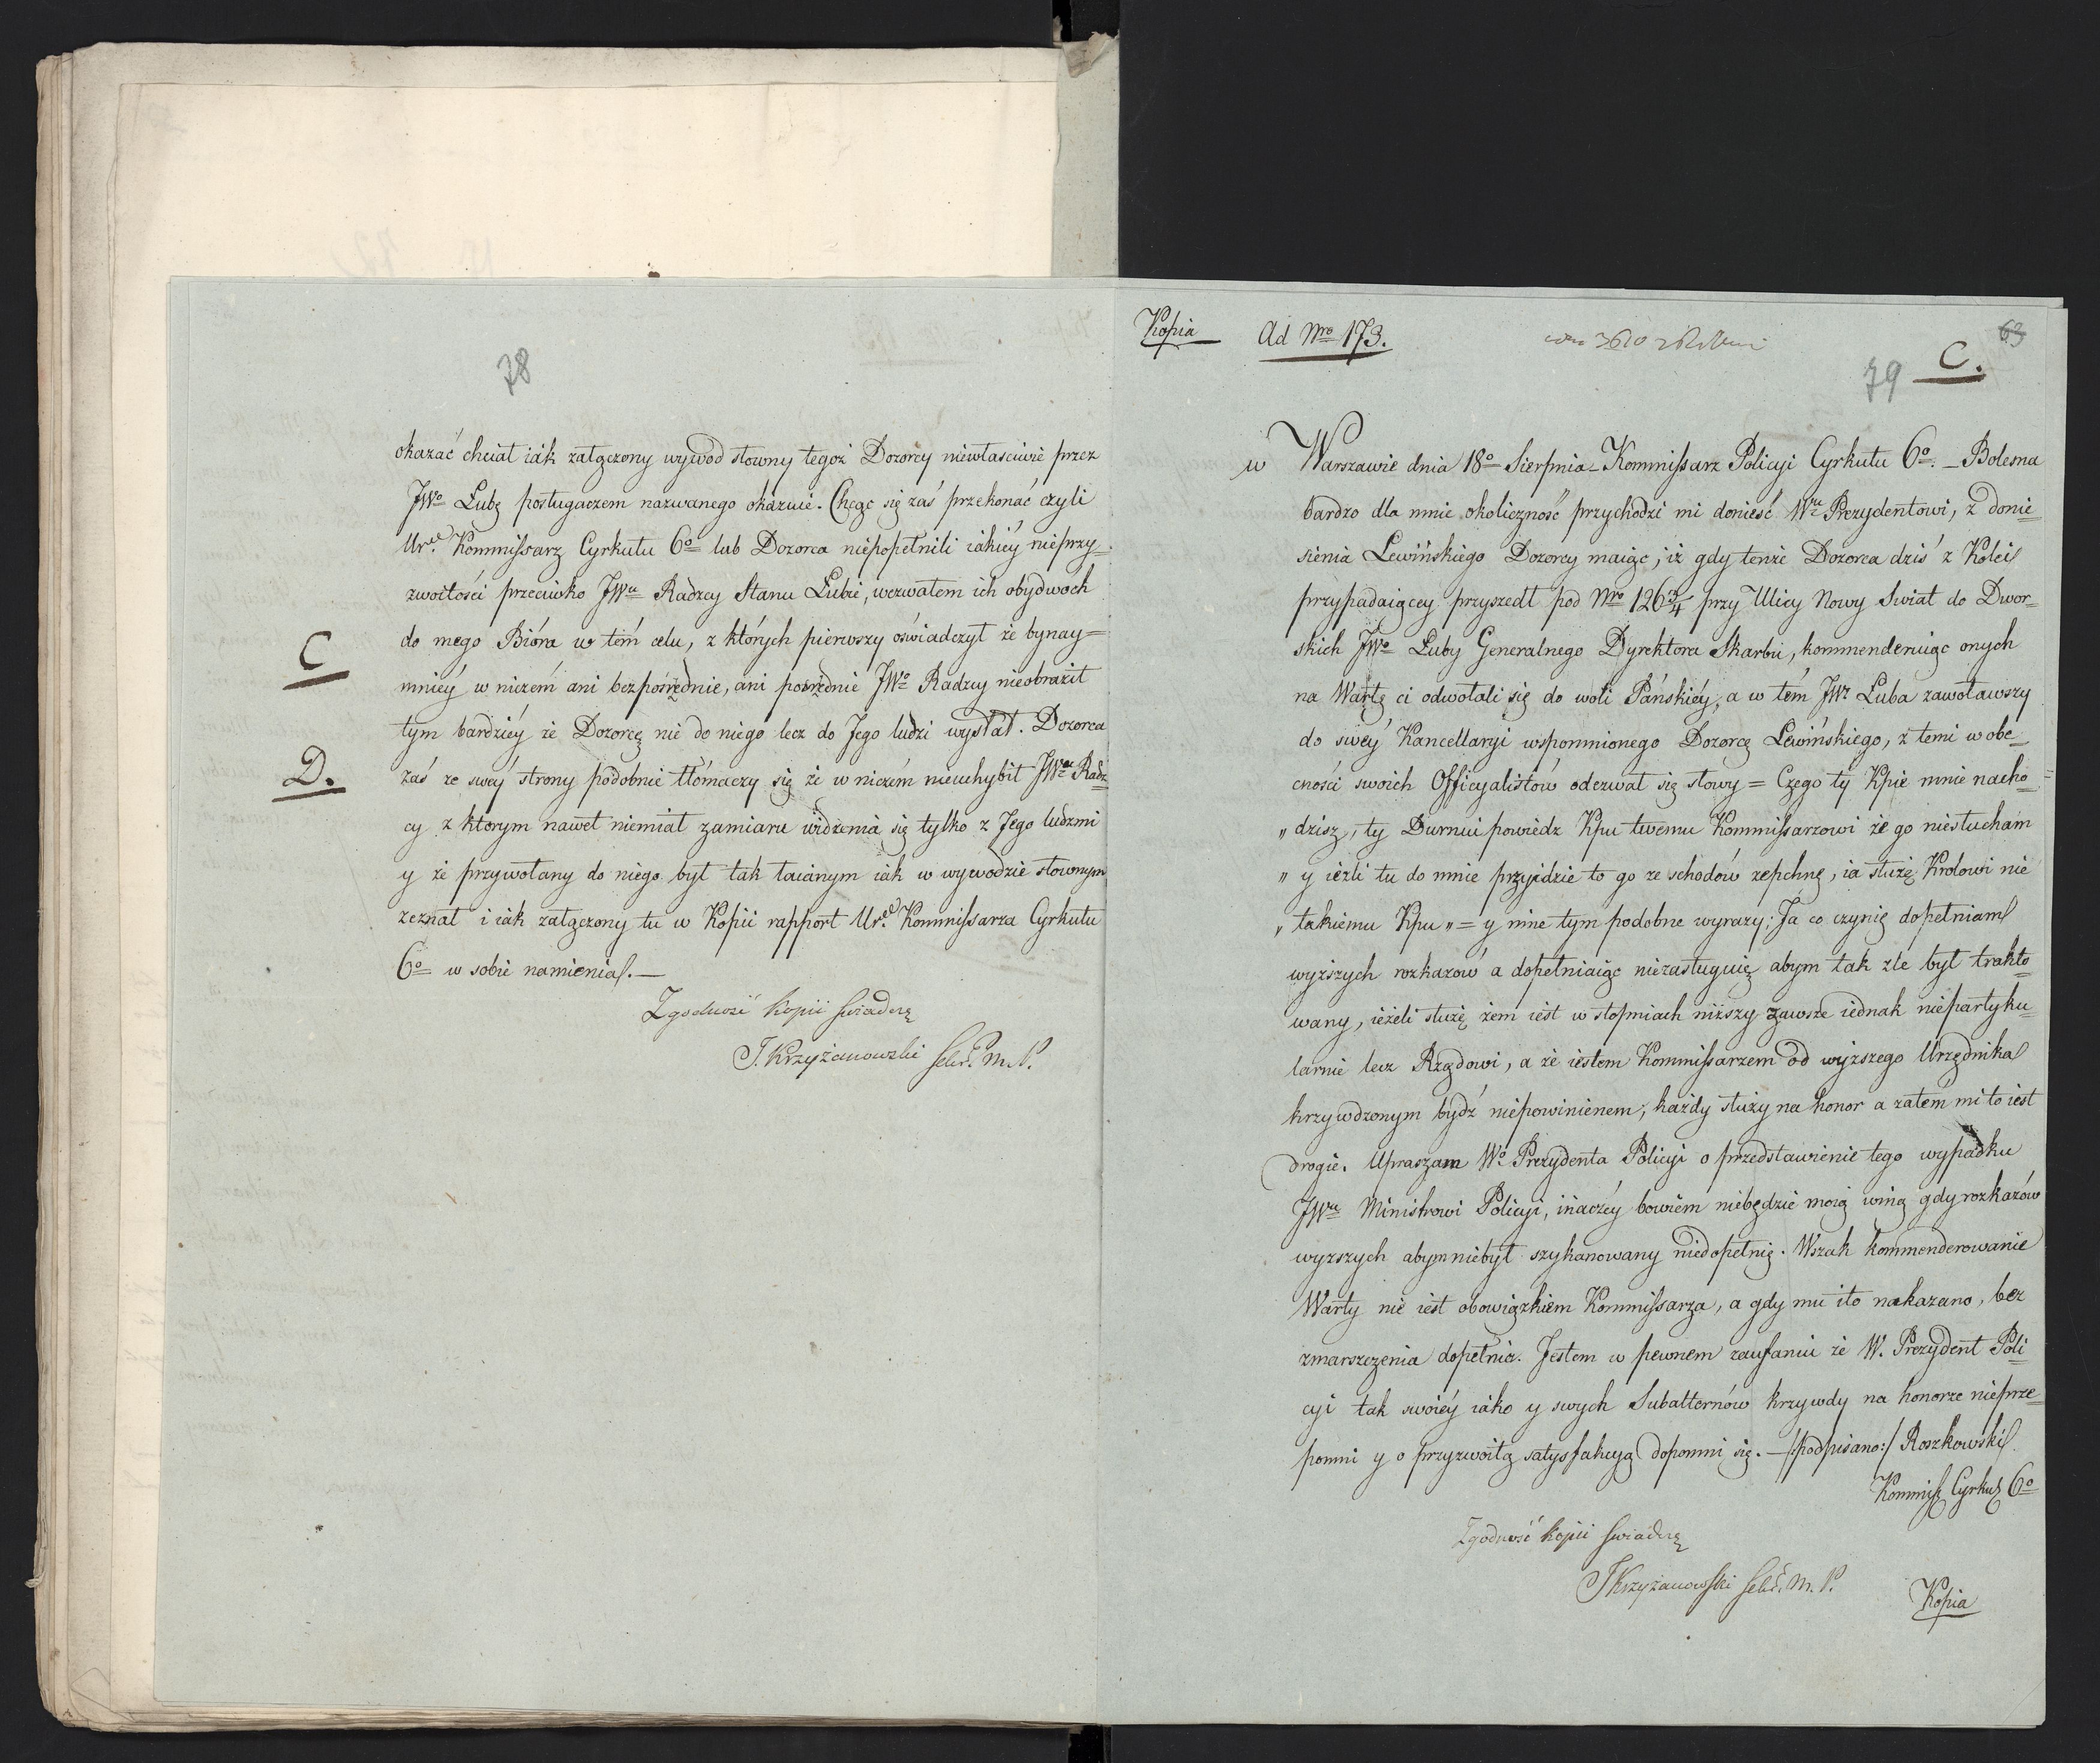 78
okazać chciał iák załączony wywod słowny tegoż Dozorcy niewłasciwie przez
JWo Lubę posługaczem nazwanego okazuie. Chcąc się zaś przekonać czyli
Ur. Kommissarz Cyrkułu 6o lub Dozorca niepopełnili iakiéy nieprzy=
zwoitości przeciwko JWu Radzcy Stanu Lubie, wezwałem ich obydwoch
C
do mego Bióra w tém celu, z których pierwszy oświadczył że bynay=
mniéy w niczém ani bezpośrzednie, ani pośrzednie JWo Radzcy nieobraził
tym bardziéy że Dozorcę nie do niego lecz do Jego ludzi wysłał. Dozorca
D.
zaś ze swéy strony podobnie tłómaczy się że w niczém nieuchybił JWu Radz=
cy z ktorym nawet niemiał zamiaru widzenia się tylko z Jego ludzmi
y że przywołany do niego był tak łaianym iak w wywodzie słownym
zeznał i iak załączony tu w Kopii rapport Ur. Kommissarza Cyrkułu
6o w sobie namienia.—
Zgodność kopii świadczę
J. Krzyżanowski Sekr. M. P.
Kopia
Ad Nro 173.
63
79
C.
w Warszawie dnia 18o Sierpnia _ Kommissarz Policyi Cyrkułu 6o. _ Bolesna
bardzo dla mnie okoliczność przychodzi mi donieść Wu Prezydentowi, z donie=
sienia Lewińskiego Dozorcy maiąc, iż gdy tenże Dozorca dziś z Kolei
przypadaiącey przyszedł pod Nro 126 3/4 przy Ulicy Nowy Swiat do Dwor=
skich JWo Luby Generalnego Dyrektora Skarbu, kommenderuiąc onych
na Wartę ci odwołali się do woli Pańskiéy, a w tém JW. Luba zawoławszy
do swéy Kancellaryi wspomnionego Dozorcę Lewińskiego, z temi w obe=
cności swoich Officyalistów odezwał się słowy = Czego ty Kpie mnie nacho=
„ dzisz, ty Durniu powiedz Kpu twemu Kommissarzowi że go niesłucham
„ y ieżli tu do mnie przyidzie to go ze schodów zepchnę, ia służę Krolowi nie
„ takiemu Kpu „ = y inne tym podobne wyrazy; Ja co czynię dopełniam
wyższych rozkazów a dopełniaiąc niezasługuię abym tak zle był trakto=
wany, ieżeli służę żem iest w stopniach niższy zawsze iednak niepartyku=
larnie lecz Rządowi, a że iestem Kommissarzem od wyższego Urzędnika
krzywdzonym bydź niepowinienem, każdy służy na honor a zatém mi to iest
drogie. Upraszam Wo Prezydenta Policyi o przedstawienie tego wypadku
JWu Ministrowi Policyi, ináczéy bowiem niebędzie moią winą gdy rozkazów
wyższych abym niebył szykanowany niedopełnię. Wszak kommenderowanie
Warty nie iest obowiązkiem Kommissarza, a gdy mu ito nakazano, bez
zmarszczenia dopełnia. Jestem w pewnem zaufaniu że W. Prezydent Poli=
cyi tak swoiéy iako y swych Subalternów krzywdy na honorze nieprze=
pomni y o przyzwoitą satysfakcyą dopomni się. —/:podpisano:/ Roszkowski
Kommiss Cyrkuł 6o
Zgodność kopii świadczę
J Krzyżanowski Sekr. M. P.
Kopia